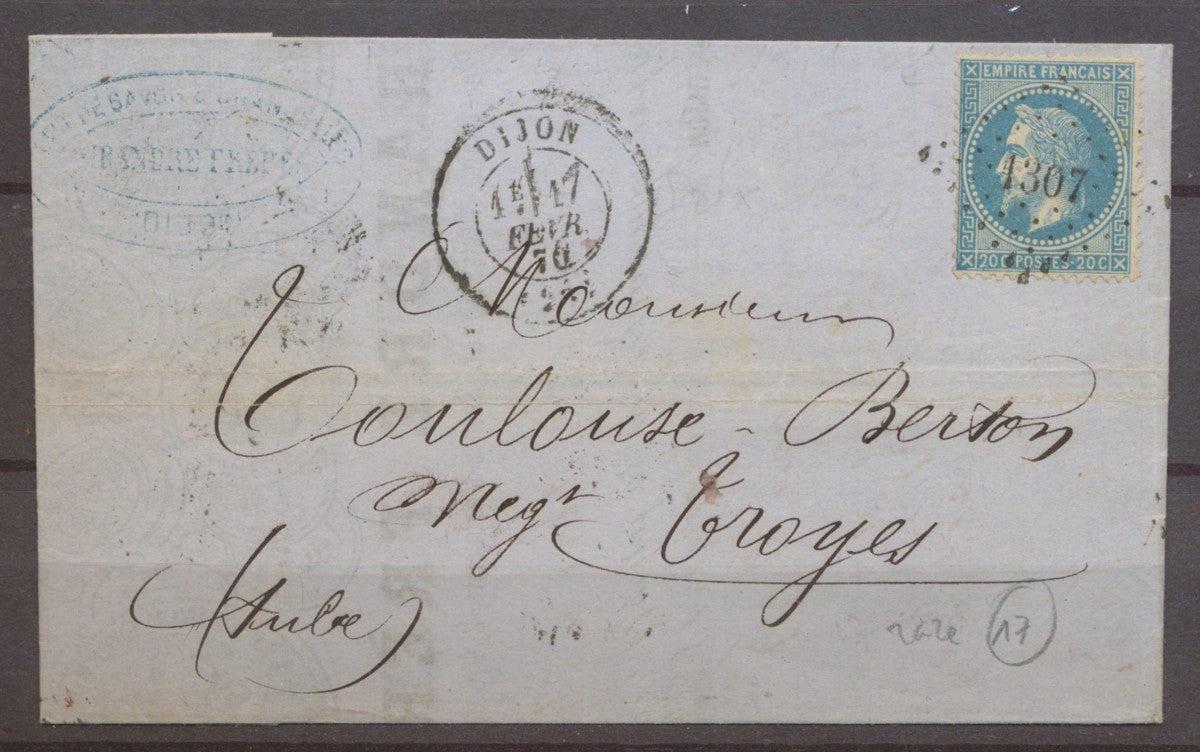 DE SAVON
DIJON
DIJON
1E 17
FEVR
70
EMPIRE FRANCAIS
1307
20 C POSTES 20 C
Monsieur
Toulouse-Berton
Negt Troyes
(Aube)
17